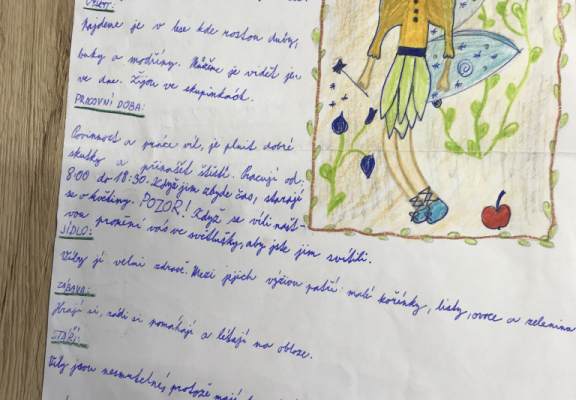 VÝSKYT:
Najdeme je v lese kde rostou duby,
buky a modříny. Můžeme je vidět jen
ve dne. Žijou ve skupinkách.
PRACOVNÍ DOBA:
Povinnost a práce víl, je plnit dobré
skutky a přinášet štěstí. Pracují od:
8:00 do 18:30. Když jim zbyde čas, starají
se o květiny. POZOR! Když se víli našt-
vou promění vás ve světlušky, aby jste jim svítili.
JÍDLO:
Víly jí velmi zdravě. Mezi jejich výživu patří: malé kořínky, listy, ovoce a zelenina
ZÁBAVA:
Hrají si, rádi si pomáhají a létají na obloze.
STÁŘÍ:
Víly jsou nesmrtelné, protože mají